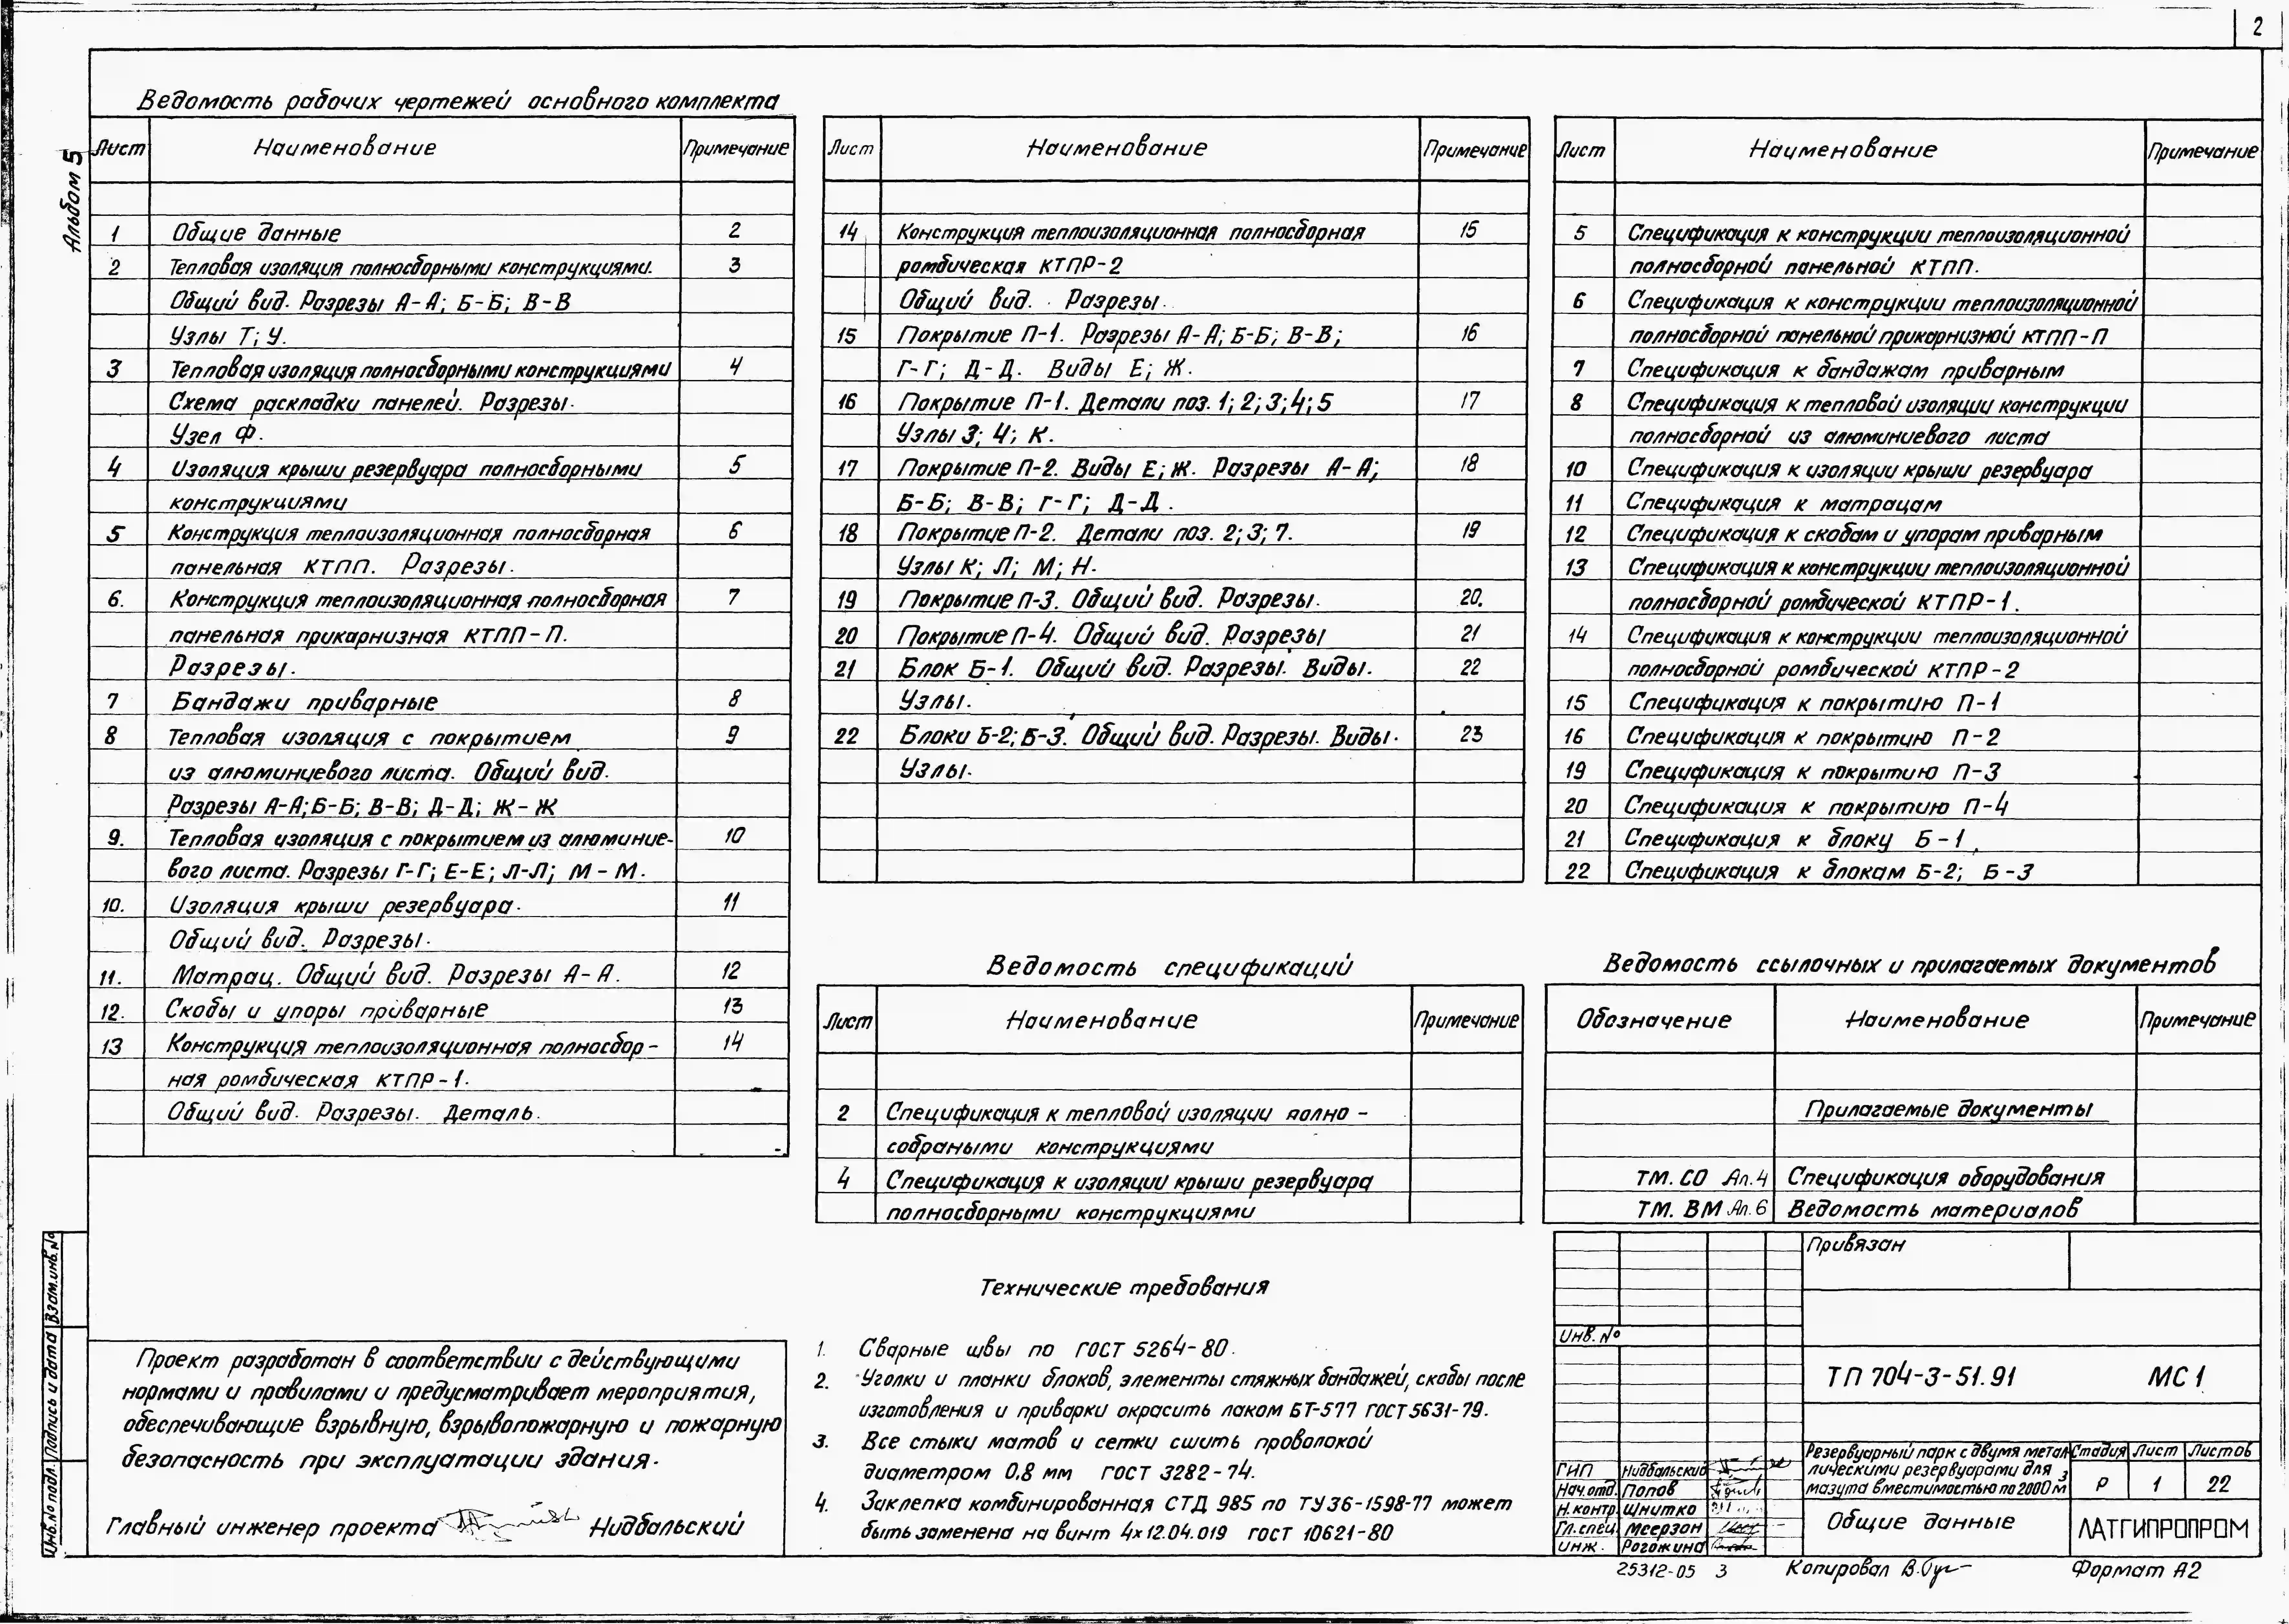 2
Альбом 5
Ведомость рабочих чертежей основного комплекта
Лист Наименование Примечание
1 Общие данные 2
2 Тепловая изоляция полносборными конструкциями. 3
Общий вид. Разрезы А-А; Б-Б; В-В
Узлы Т; У.
3 Тепловая изоляция полносборными конструкциями 4
Схема раскладки панелей. Разрезы.
Узел Ф.
4 Изоляция крыши резервуара полносборными 5
конструкциями
5 Конструкция теплоизоляционная полносборная 6
панельная КТПП. Разрезы.
6. Конструкция теплоизоляционная полносборная 7
панельная прикарнизная КТПП-П.
Разрезы.
7 Бандажи приварные 8
8 Тепловая изоляция с покрытием 9
из алюминиевого листа. Общий вид.
Разрезы А-А; Б-Б; В-В; Д-Д; Ж-Ж
9. Тепловая изоляция с покрытием из алюминие- 10
вого листа. Разрезы Г-Г; Е-Е; Л-Л; М-М.
10. Изоляция крыши резервуара. 11
Общий вид. Разрезы.
11. Матрац. Общий вид. Разрезы А-А. 12
12. Скобы и упоры приварные 13
13 Конструкция теплоизоляционная полносбор- 14
ная ромбическая КТПР-1.
Общий вид. Разрезы. Деталь.
Лист Наименование Примечание
14 Конструкция теплоизоляционная полносборная 15
ромбическая КТПР-2
Общий вид. Разрезы.
15 Покрытие П-1. Разрезы А-А; Б-Б; В-В; 16
Г-Г; Д-Д. Виды Е; Ж.
16 Покрытие П-1. Детали поз. 1; 2; 3; 4; 5 17
Узлы 3; 4; К.
17 Покрытие П-2. Виды Е; Ж. Разрезы А-А; 18
Б-Б; В-В; Г-Г; Д-Д.
18 Покрытие П-2. Детали поз. 2; 3; 7. 19
Узлы К; Л; М; Н.
19 Покрытие П-3. Общий вид. Разрезы. 20.
20 Покрытие П-4. Общий вид. Разрезы 21
21 Блок Б-1. Общий вид. Разрезы. Виды. 22
Узлы.
22 Блоки Б-2; Б-3. Общий вид. Разрезы. Виды. 23
Узлы.
Ведомость спецификаций
Лист Наименование Примечание
2 Спецификация к тепловой изоляции полно-
собраными конструкциями
4 Спецификация к изоляции крыши резервуара
полносборными конструкциями
Лист Наименование Примечание
5 Спецификация к конструкции теплоизоляционной
полносборной панельной КТПП.
6 Спецификация к конструкции теплоизоляционной
полносборной панельной прикарнизной КТПП-П
7 Спецификация к бандажам приварным
8 Спецификация к тепловой изоляции конструкции
полносборной из алюминиевого листа
10 Спецификация к изоляции крыши резервуара
11 Спецификация к матрацам
12 Спецификация к скобам и упорам приварным
13 Спецификация к конструкции теплоизоляционной
полносборной ромбической КТПР-1.
14 Спецификация к конструкции теплоизоляционной
полносборной ромбической КТПР-2
15 Спецификация к покрытию П-1
16 Спецификация к покрытию П-2
19 Спецификация к покрытию П-3
20 Спецификация к покрытию П-4
21 Спецификация к блоку Б-1
22 Спецификация к блокам Б-2; Б-3
Ведомость ссылочных и прилагаемых документов
Обозначение Наименование Примечание
Прилагаемые документы
ТМ. СО Ал. 4 Спецификация оборудования
ТМ. ВМ Ал. 6 Ведомость материалов
Технические требования
1. Сварные швы по ГОСТ 5264-80.
2. Уголки и планки блоков, элементы стяжных бандажей, скобы после
изготовления и приварки окрасить лаком БТ-577 ГОСТ 5631-79.
3. Все стыки матов и сетки сшить проволокой
диаметром 0,8 мм ГОСТ 3282-74.
4. Заклепка комбинированная СТД 985 по ТУ36-1598-77 может
быть заменена на винт 4х12.04.019 ГОСТ 10621-80
Проект разработан в соответствии с действующими
нормами и правилами и предусматривает мероприятия,
обеспечивающие взрывную, взрывопожарную и пожарную
безопасность при эксплуатации здания.
Главный инженер проекта Нидбальский
Инв. № подл. Подпись и дата Взам. инв. №
Привязан
Инв. №
ТП 704-3-51.91 МС1
ГИП Нидбальский
Нач. отд. Попов
Н. контр. Шнитко
Гл. спец. Меерзон
Инж. Рогожина
Резервуарный парк с двумя метал-
лическими резервуарами для
мазута вместимостью по 2000 м3
Стадия Лист Листов
Р 1 22
Общие данные
ЛАТГИПРОПРОМ
25312-05 3 Копировал Формат А2